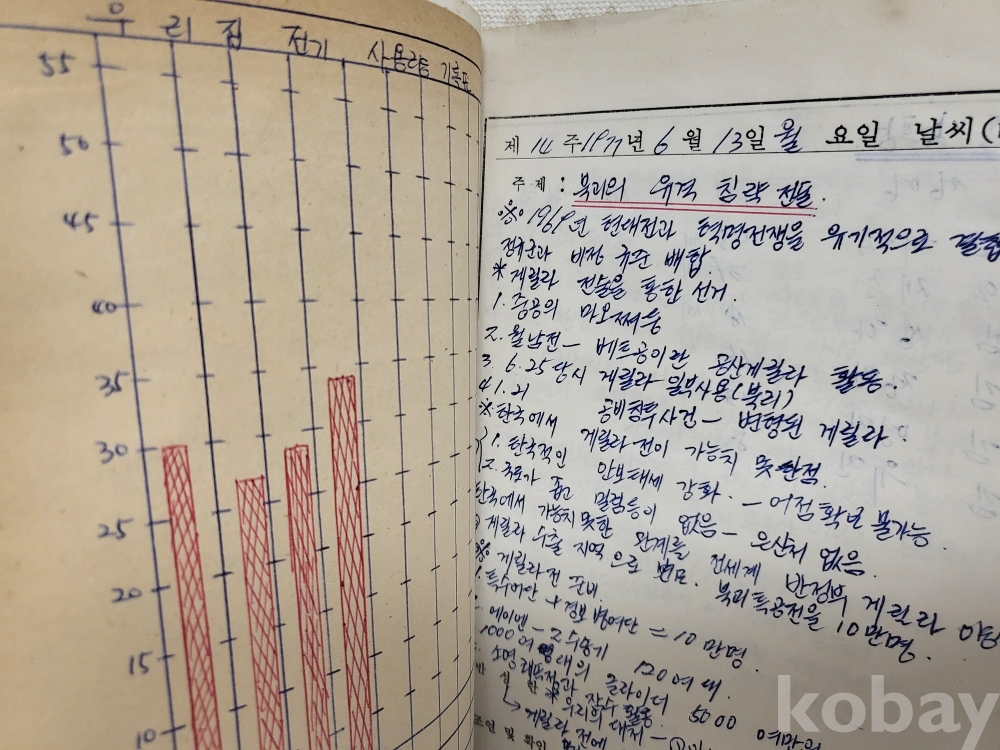 우리집 전기 사용량 기록표
55
50
45
40
35
30
25
20
15
10
제 14 주 1977년 6월 13일 월 요일 날씨(
주제 : 북괴의 유격 침략 전술.
※ 1969년 현대전과 혁명전쟁을 유기적으로
정규군과 비정규군 배합.
* 게릴라 전술을 통한 선거.
1. 중공의 마오쩌둥
2. 월남전 — 베트공이란 공산게릴라 활동.
3. 6.25 당시 게릴라 일부사용(북괴)
4. 1.21 공비침투사건 — 변형된 게릴라.
※ 한국에서 게릴라전이 가능치 못한점.
1. 한국적인 안보태세 강화.
2. 국토가 좁고 밀림등이 없음 — 거점확보 불가능.
한국에서 가능치못한 관계를 은신처 없음.
게릴라 수출 지역으로 전세계 반정부 게릴라
※ 게릴라전 준비. 북괴특공전을 10만명.
1. 특수여단 + 경보병여단 = 10만명.
120여대.
1000여 대의 글라이더 5000
우리의 대처
게릴라전에
kobay